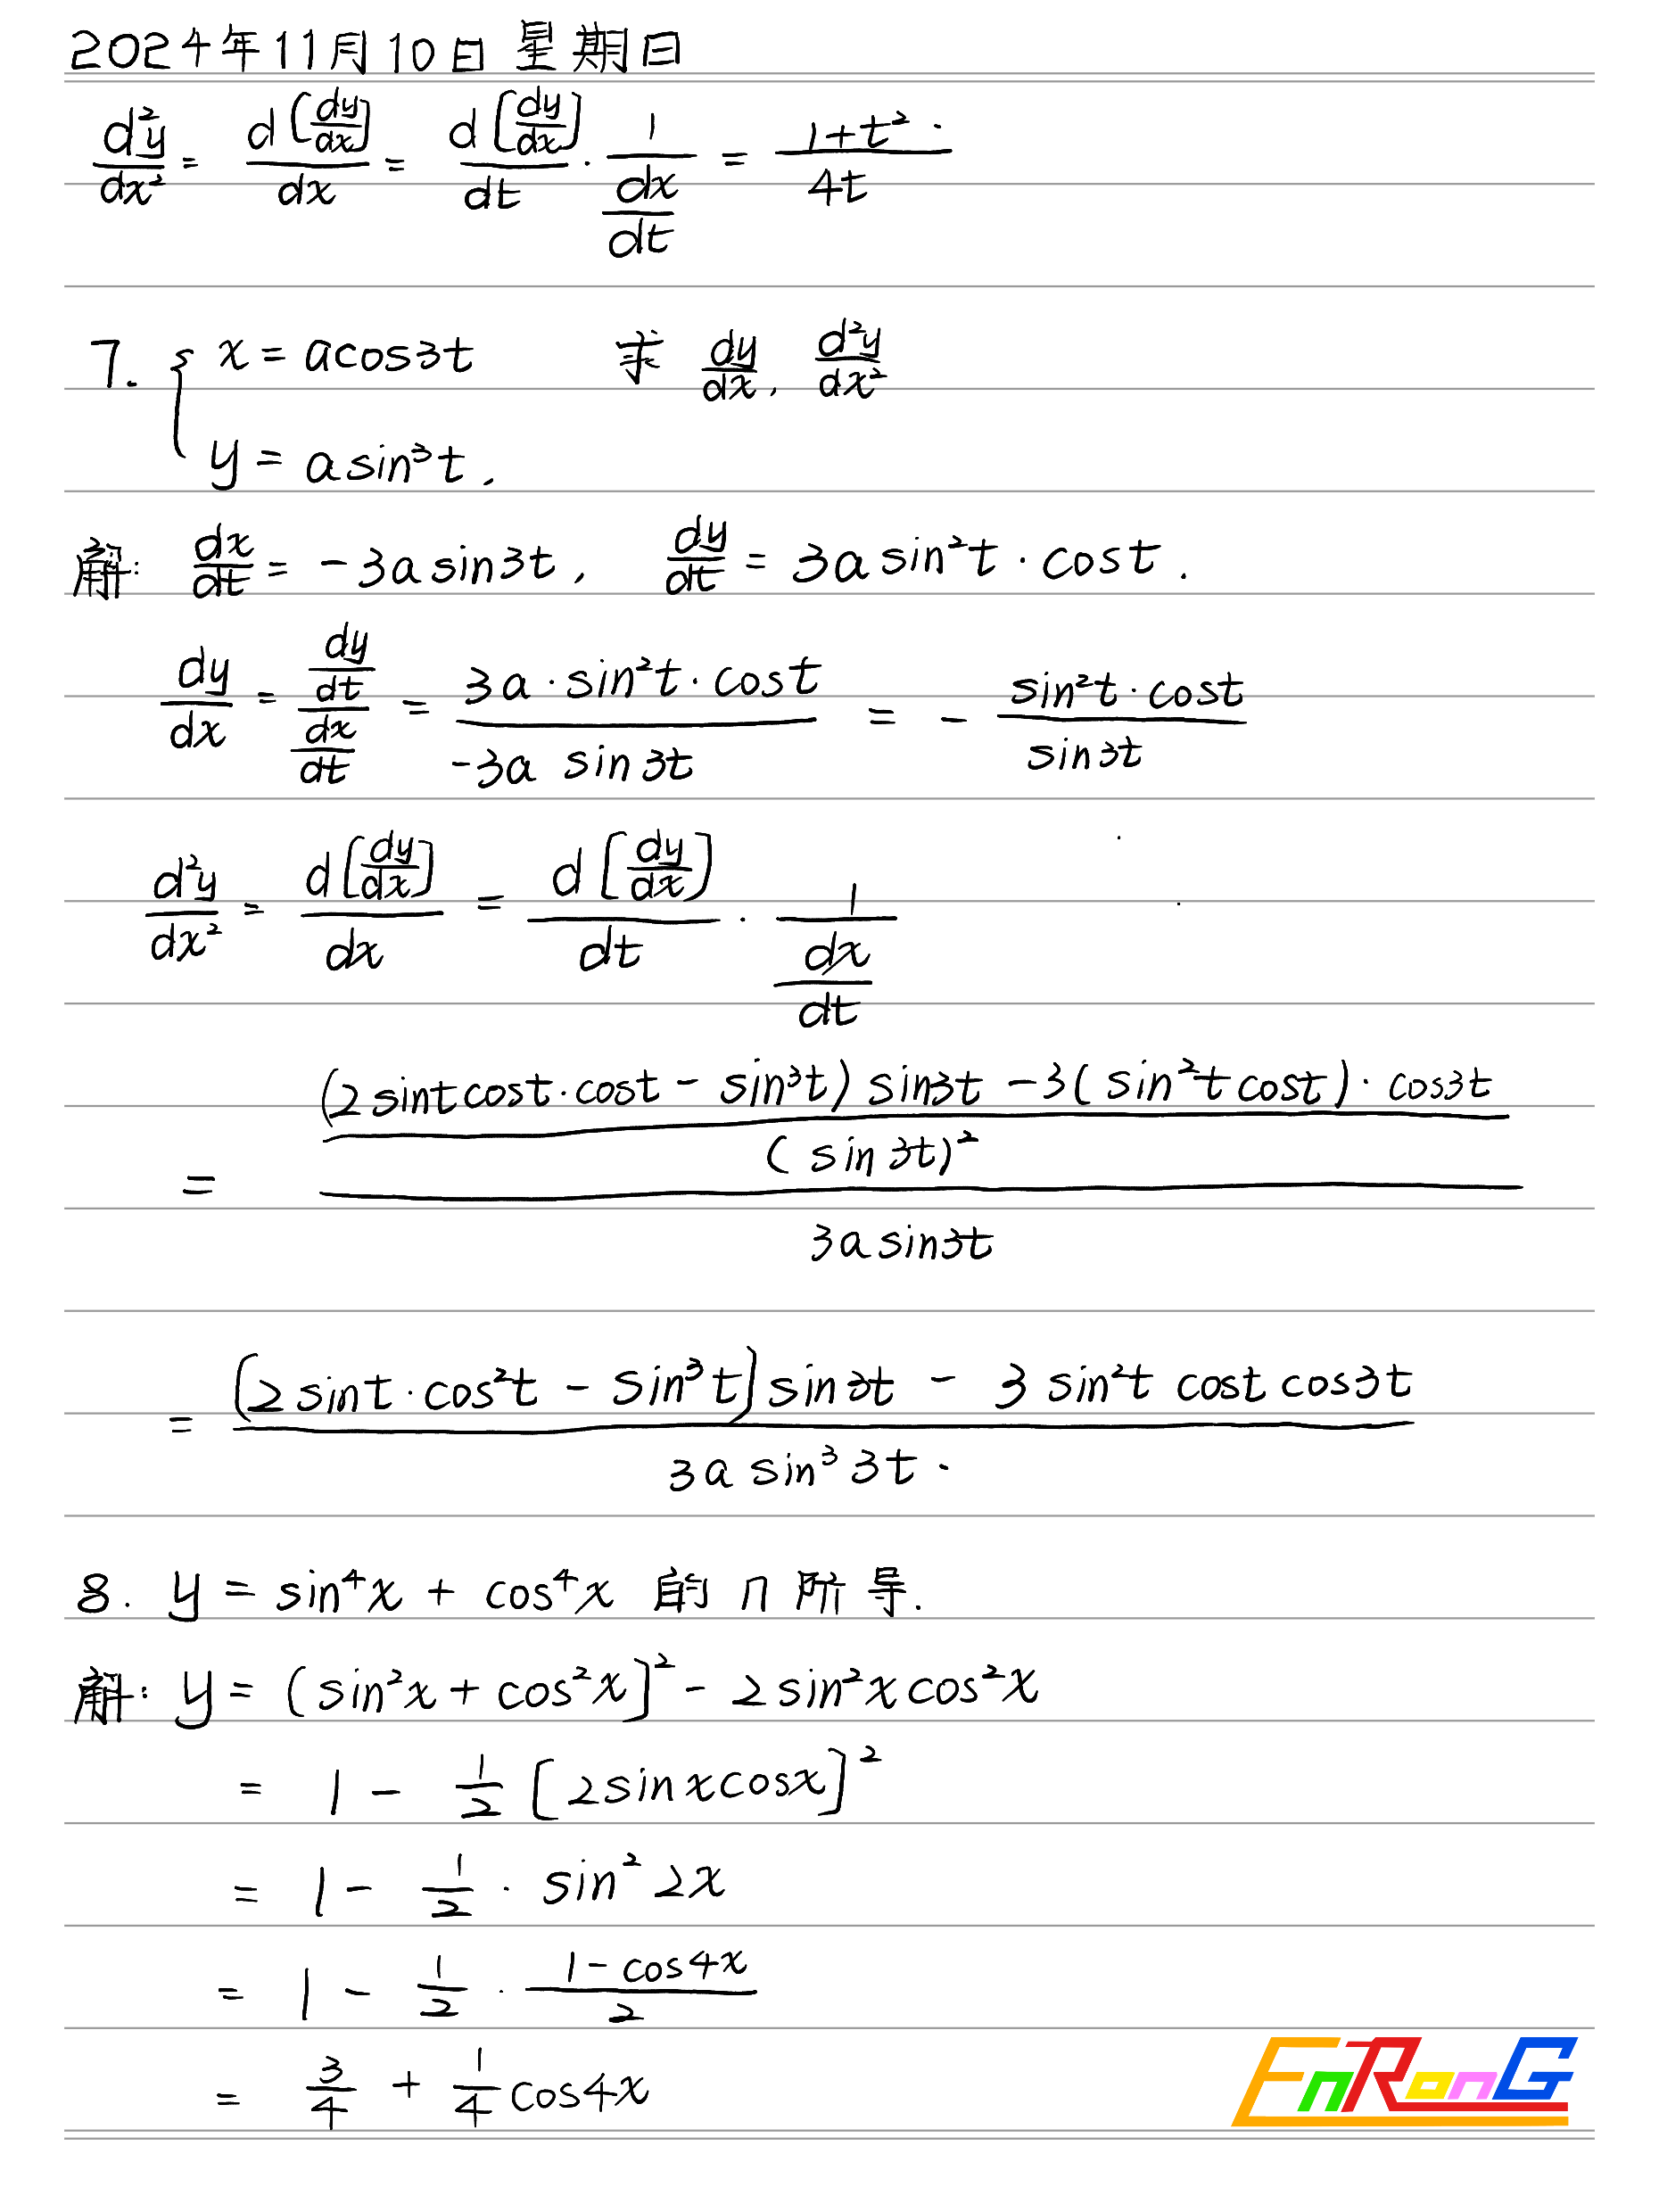 2024年11月10日 星期日
d²y/dx² = d(dy/dx)/dx = d[dy/dx]/dt · 1/(dx/dt) = (1+t²)/4t ·
7. { x = acos3t 求 dy/dx, d²y/dx²
y = asin³t,
解: dx/dt = -3a sin3t, dy/dt = 3a sin²t · cost.
dy/dx = (dy/dt)/(dx/dt) = (3a · sin²t · cost)/(-3a sin3t) = - (sin²t · cost)/(sin3t)
d²y/dx² = d[dy/dx]/dx = d[dy/dx]/dt · 1/(dx/dt)
= [((2sintcost·cost - sin³t) sin3t - 3(sin²tcost) · cos3t)/(sin3t)²]/(3asin3t)
= ((2sint·cos²t - sin³t)sin3t - 3sin²t cost cos3t)/(3a sin³3t) ·
8. y = sin⁴x + cos⁴x 的n所导.
解: y = (sin²x + cos²x]² - 2sin²xcos²x
= 1 - 1/2 [2sinxcosx]²
= 1 - 1/2 · sin²2x
= 1 - 1/2 · (1-cos4x)/2
= 3/4 + 1/4 cos4x
EnRonG